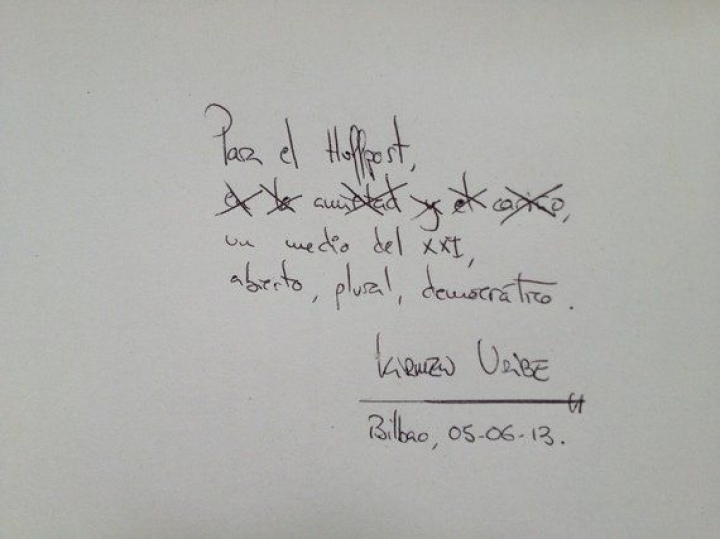 Para el Huffpost,
en la amistad y el cariño,
un medio del XXI,
abierto, plural, democrático.
Kirmen Uribe
Bilbao, 05-06-13.